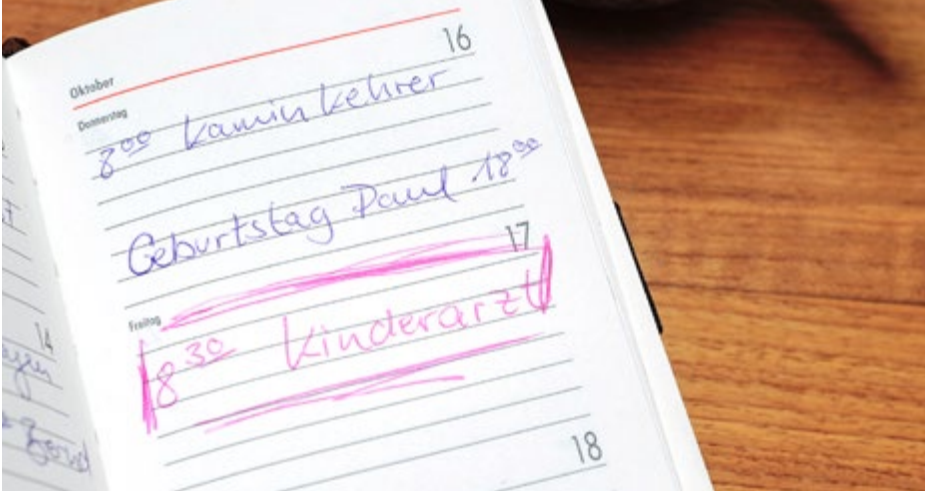 Oktober 16
Donnerstag
8⁰⁰ Kaminkehrer
Geburtstag Paul 18⁰⁰
17
Freitag
8³⁰ Kinderarzt
18
14